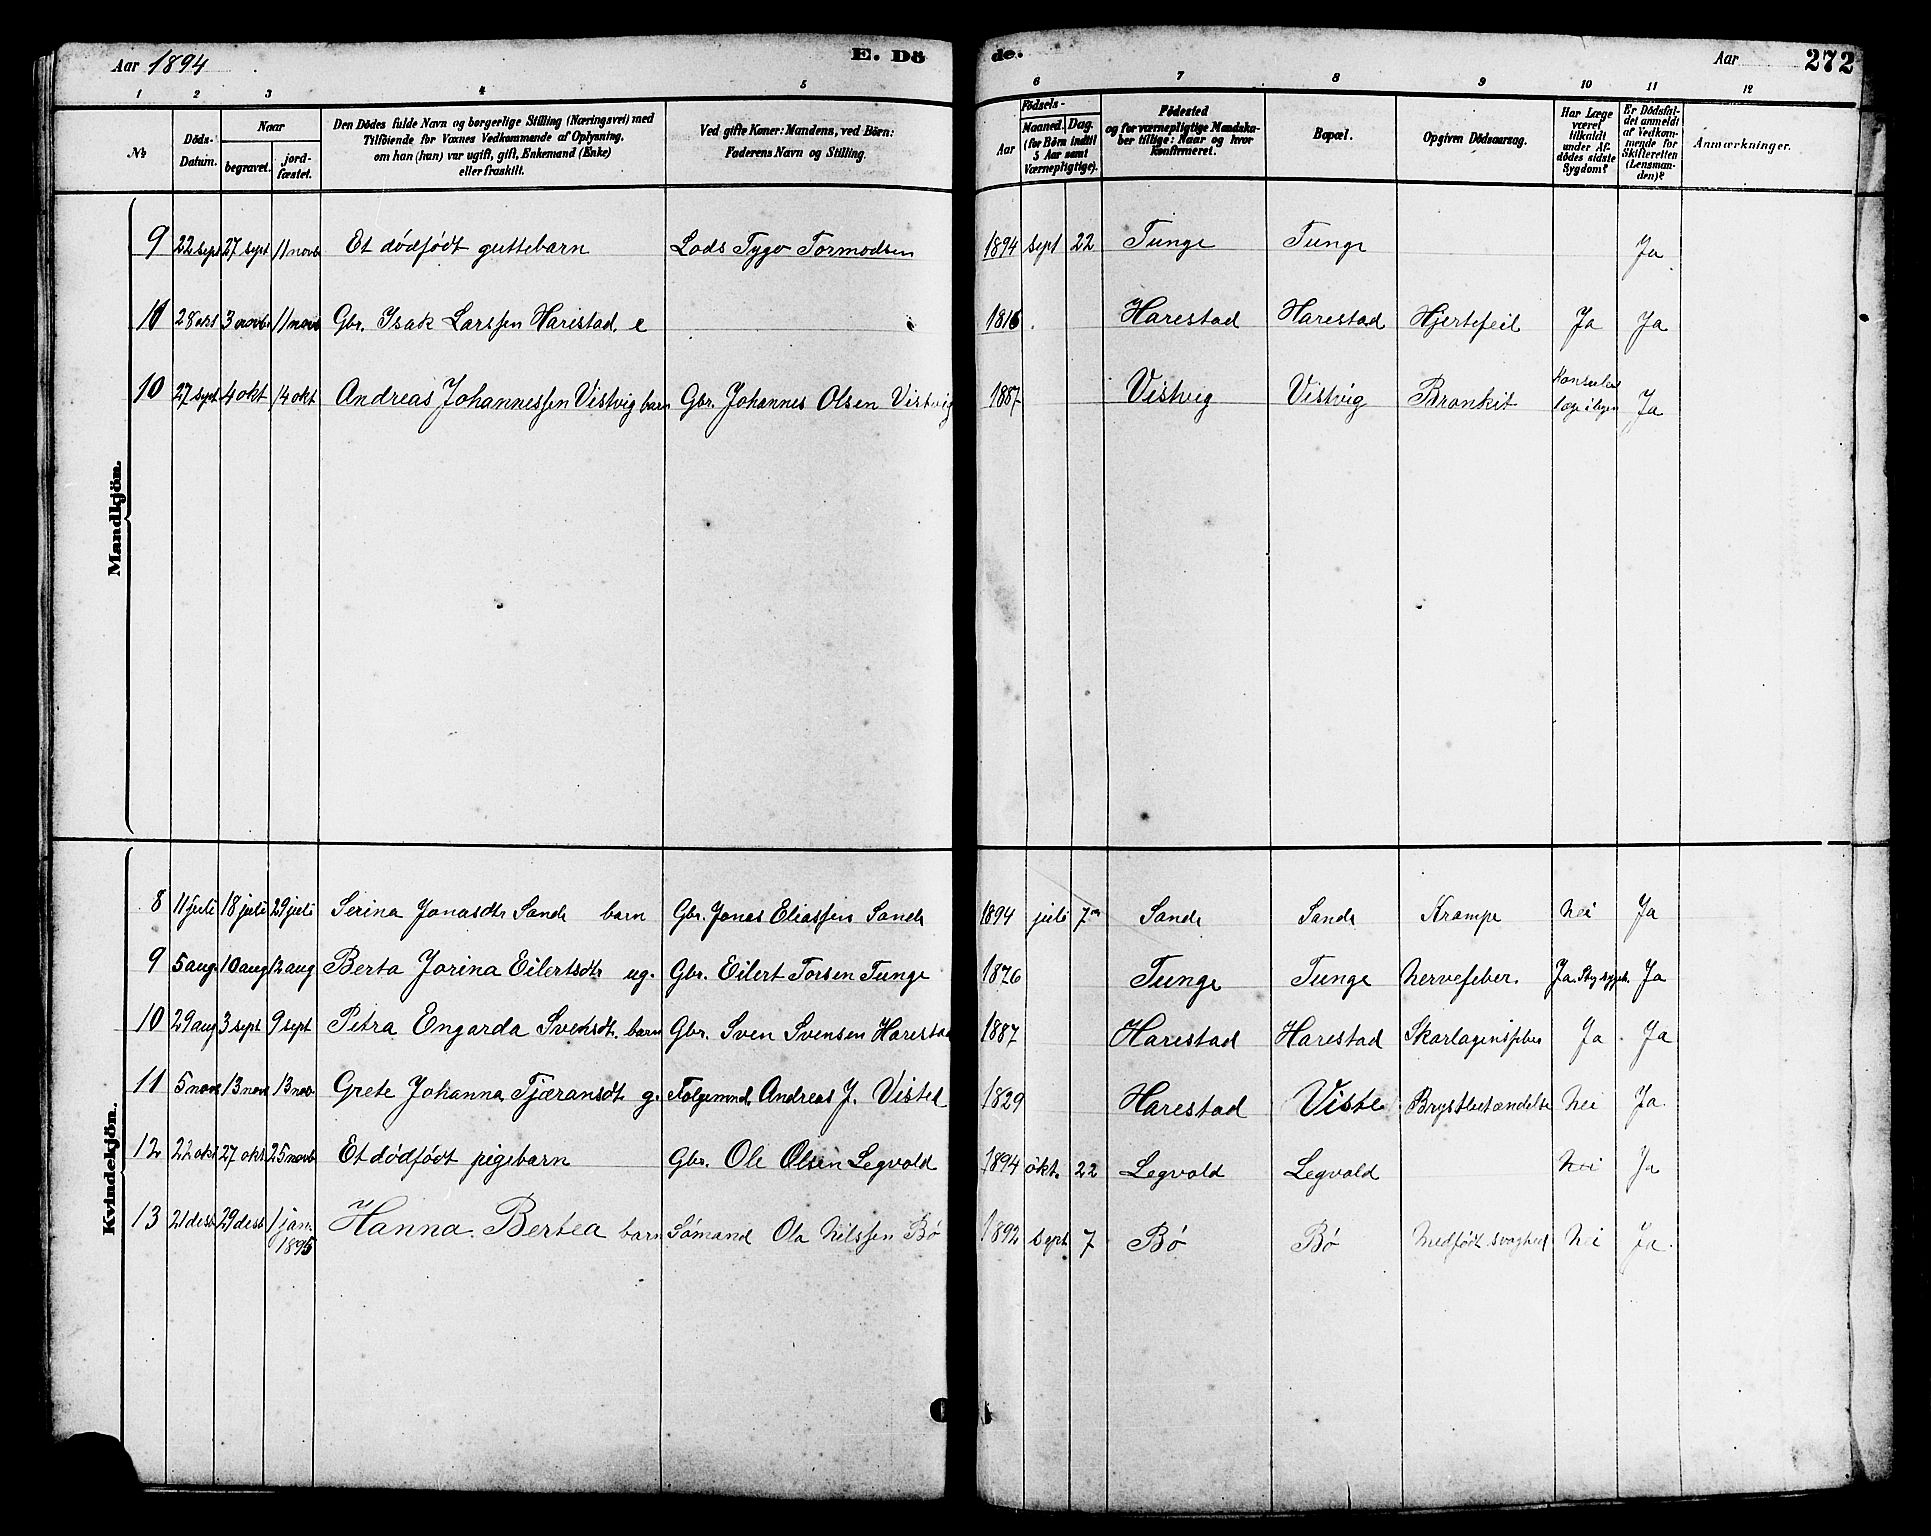 Aar 1894 E. Dö de. Aar 272
1 2 3 4 5 6 7 8 9 10 11 12
№ Döds-Datum. Naar begravet. jord-fæstet. Den Dödes fulde Navn og borgerlige Stilling (Næringsvei) med Tilföiende for Voxnes Vedkommende af Oplysning, om han (hun) var ugift, gift, Enkemand (Enke) eller fraskilt. Ved gifte Koner: Mandens, ved Börn: Faderens Navn og Stilling. Födsels- Aar Maaned. Dag. (for Börn indtil 5 Aar samt Værnepligtige). Födested og for værnepligtige Mandskaber tillige: Naar og hvor konfirmeret. Bopæl. Opgiven Dödsaarsag. Har Læge været tilkaldt under Afdödes sidste Sygdom? Er Dödsfaldet anmeldt af Vedkommende for Skifteretten (Lensmanden)? Anmærkninger.
Mandkjön.
9 22 sept 27 sept 11 novb Et dödfödt guttebarn Lods Tygo Tormodsen 1894 sept 22 Tunge Tunge Ja
11 28 okt 3 novb. 11 novb Gbr. Isak Larssen Harestad e 1816 Harestad Harestad Hjertefeil Ja Ja
10 27 sept 4 okt 14 okt Andreas Johannessen Vistvig barn Gbr. Johannes Olsen Vistvig 1887 Vistvig Vistvig Bronkit Ja
Kvindekjön.
8 11 juli 18 juli 29 juli Serina Jonasdtr Sande barn Gbr. Jonas Eliassen Sande 1894 juli 7 Sande Sande Krampe Nei Ja
9 5 aug 10 aug 12 aug Berta Jorina Eilertsdtr ug. Gbr. Eilert Torsen Tunge 1876 Tunge Tunge Nervefeber. Ja Ja
10 29 aug 3 sept 9 sept Petra Engarda Svensdt. barn Gbr. Sven Svensen Harestad 1887 Harestad Harestad Skarlagensfeber Ja Ja
11 5 nov 13 nov 13 nov. Grete Johanna Tjæransdt. g. Folgemnd. Andreas J. Viste 1829 Harestad Viste Brystbetændelse Nei Ja
12 22 okt 27 okt 25 novb Et dödfödt pigebarn Gbr. Ole Olsen Legvold 1894 okt. 22 Legvold Legvold Nei Ja
13 21 desb 29 desb 1 jan. 1895 Hanna Bertea barn Sömand Ola Nilssen Bö 1892 Sept 7 Bö Bö Medfödt svaghed Nei Ja